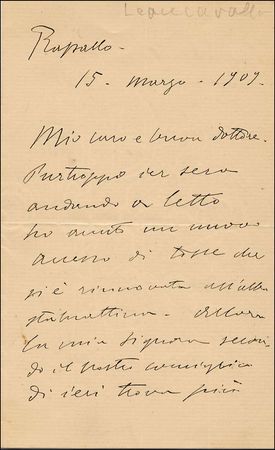 Leoncavallo
Rapallo -
15. marzo - 1909.
Mio caro e buon dottore.
Purtroppo ier sera
andando a letto
ho avuto un nuovo
accesso di tosse che
si è rinnovato all'alba
stamattina. Allora
la mia signora secon
do il vostro consiglio
di ieri trova più